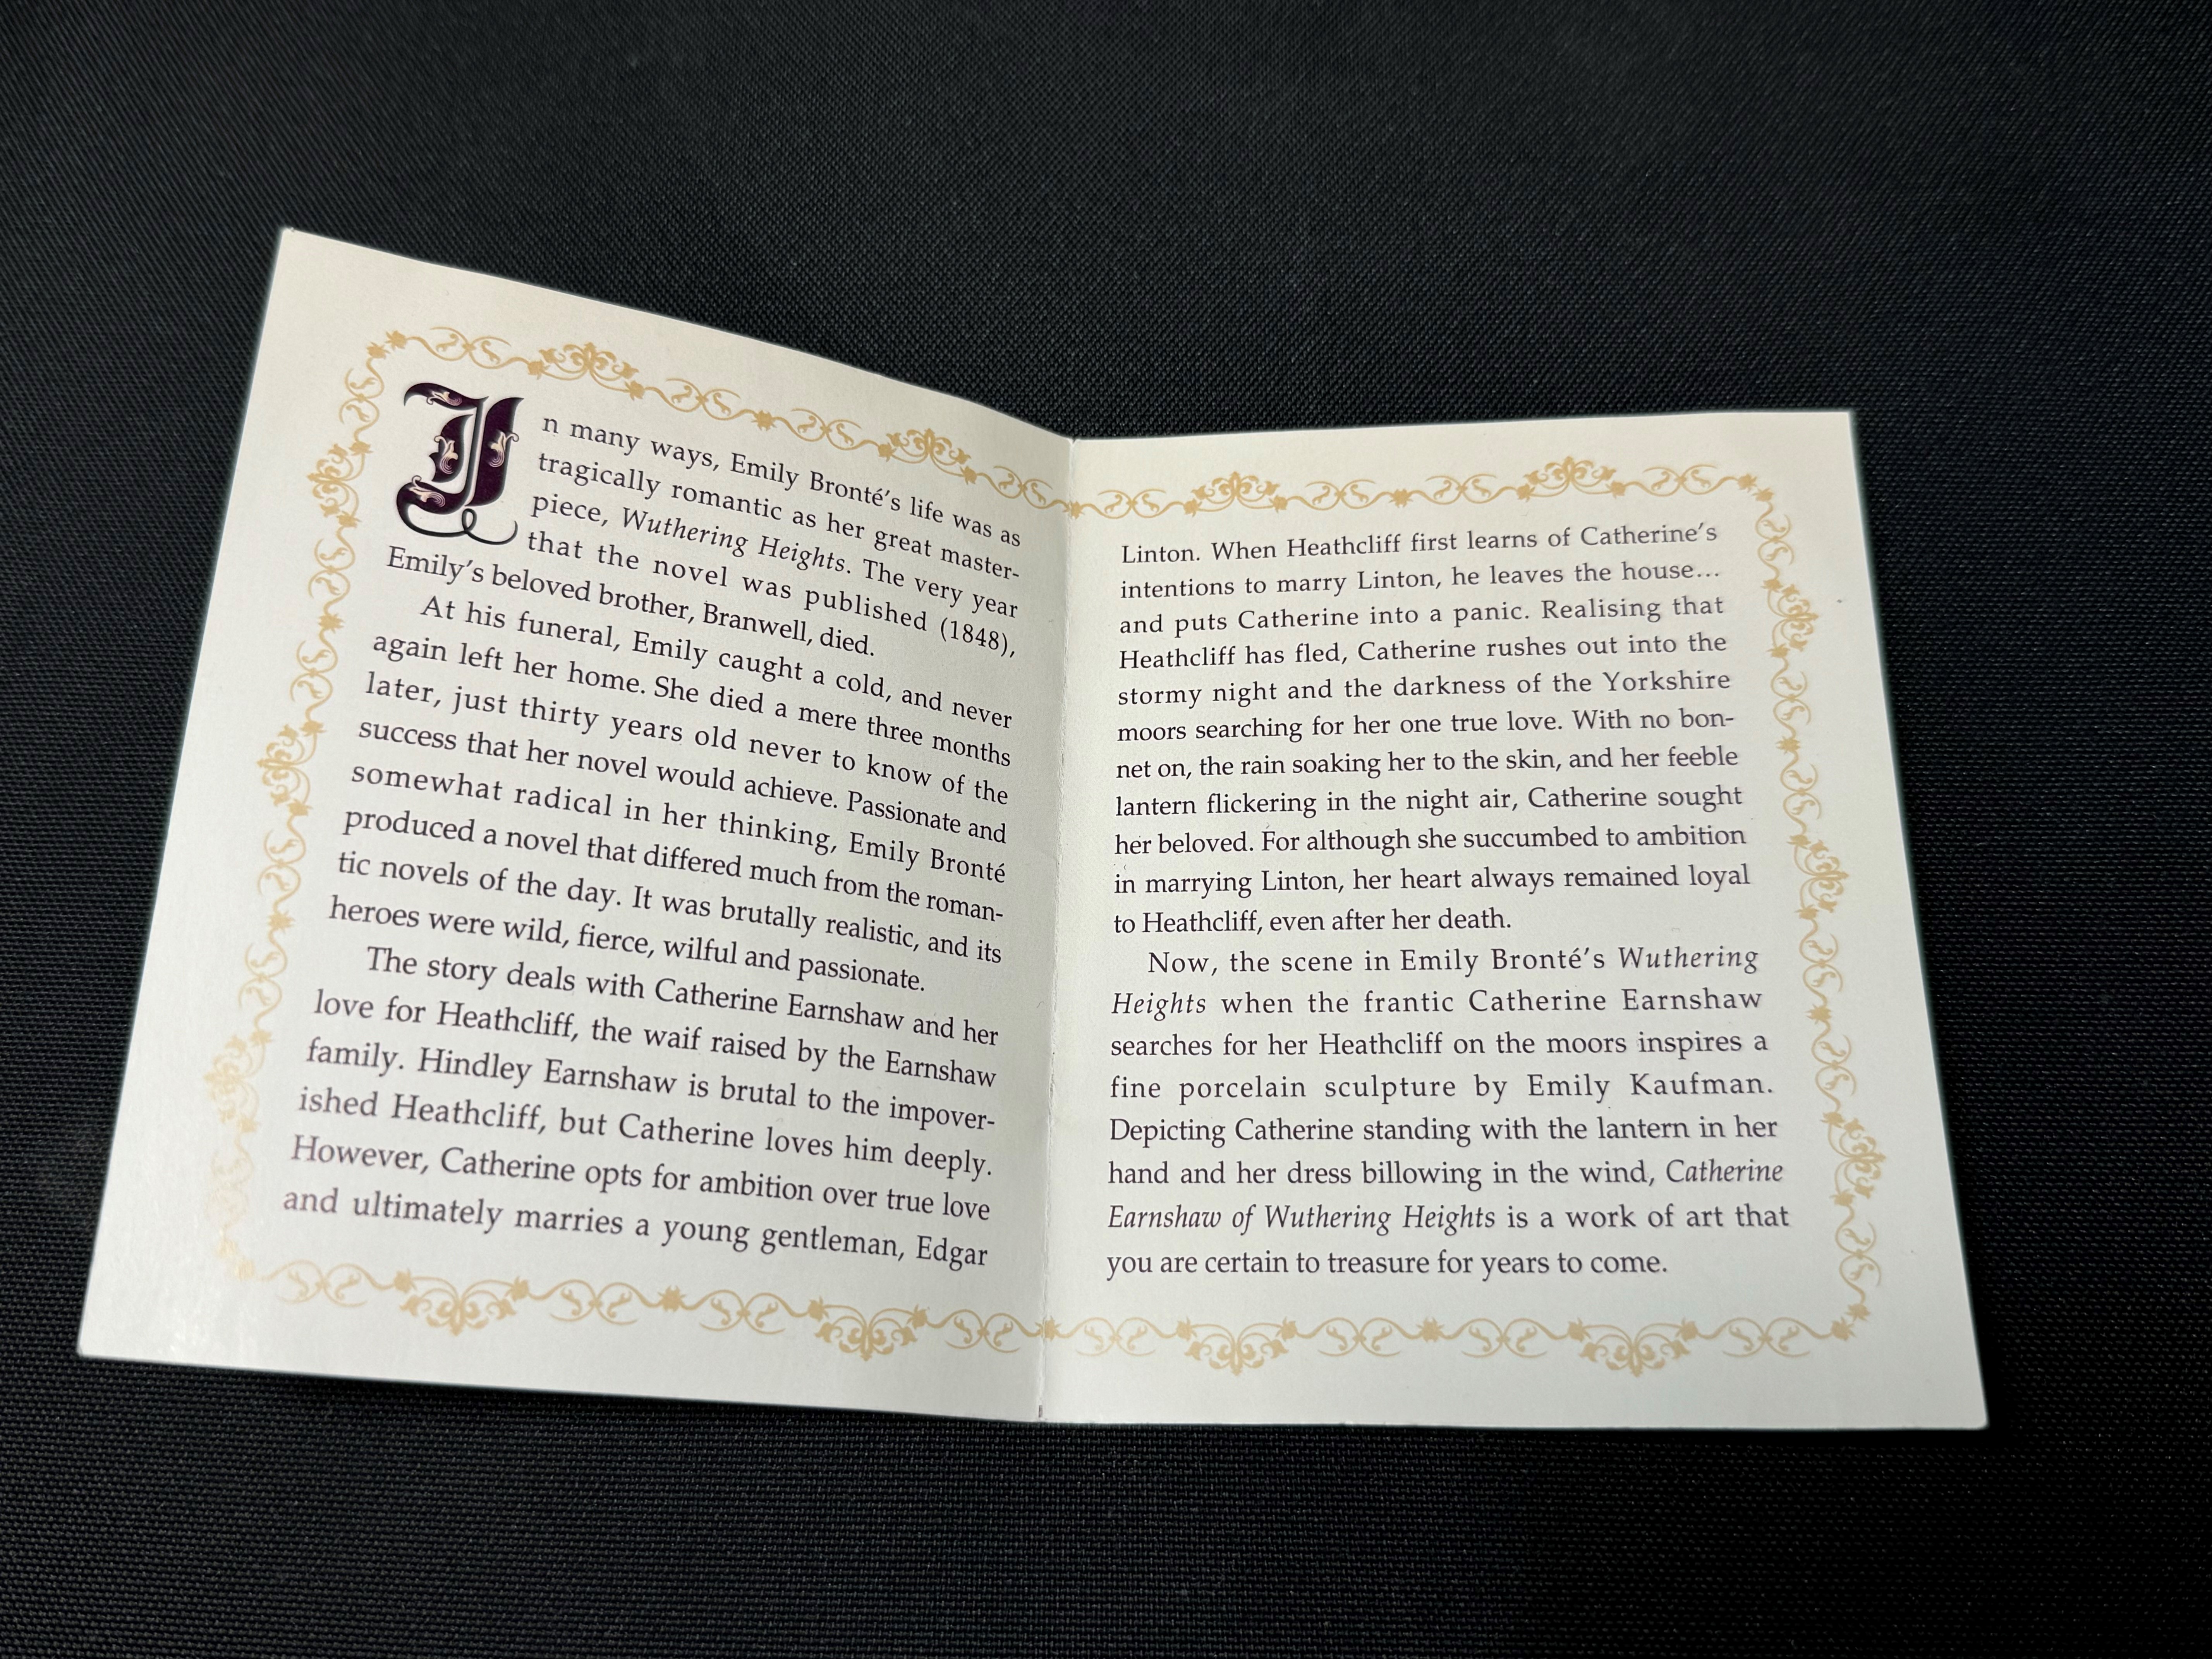 In many ways, Emily Bronté's life was as
tragically romantic as her great master-
piece, Wuthering Heights. The very year
that the novel was published (1848),
Emily's beloved brother, Branwell, died.
At his funeral, Emily caught a cold, and never
again left her home. She died a mere three months
later, just thirty years old never to know of the
success that her novel would achieve. Passionate and
somewhat radical in her thinking, Emily Bronté
produced a novel that differed much from the roman-
tic novels of the day. It was brutally realistic, and its
heroes were wild, fierce, wilful and passionate.
The story deals with Catherine Earnshaw and her
love for Heathcliff, the waif raised by the Earnshaw
family. Hindley Earnshaw is brutal to the impover-
ished Heathcliff, but Catherine loves him deeply.
However, Catherine opts for ambition over true love
and ultimately marries a young gentleman, Edgar
Linton. When Heathcliff first learns of Catherine's
intentions to marry Linton, he leaves the house...
and puts Catherine into a panic. Realising that
Heathcliff has fled, Catherine rushes out into the
stormy night and the darkness of the Yorkshire
moors searching for her one true love. With no bon-
net on, the rain soaking her to the skin, and her feeble
lantern flickering in the night air, Catherine sought
her beloved. For although she succumbed to ambition
in marrying Linton, her heart always remained loyal
to Heathcliff, even after her death.
Now, the scene in Emily Bronté's Wuthering
Heights when the frantic Catherine Earnshaw
searches for her Heathcliff on the moors inspires a
fine porcelain sculpture by Emily Kaufman.
Depicting Catherine standing with the lantern in her
hand and her dress billowing in the wind, Catherine
Earnshaw of Wuthering Heights is a work of art that
you are certain to treasure for years to come.